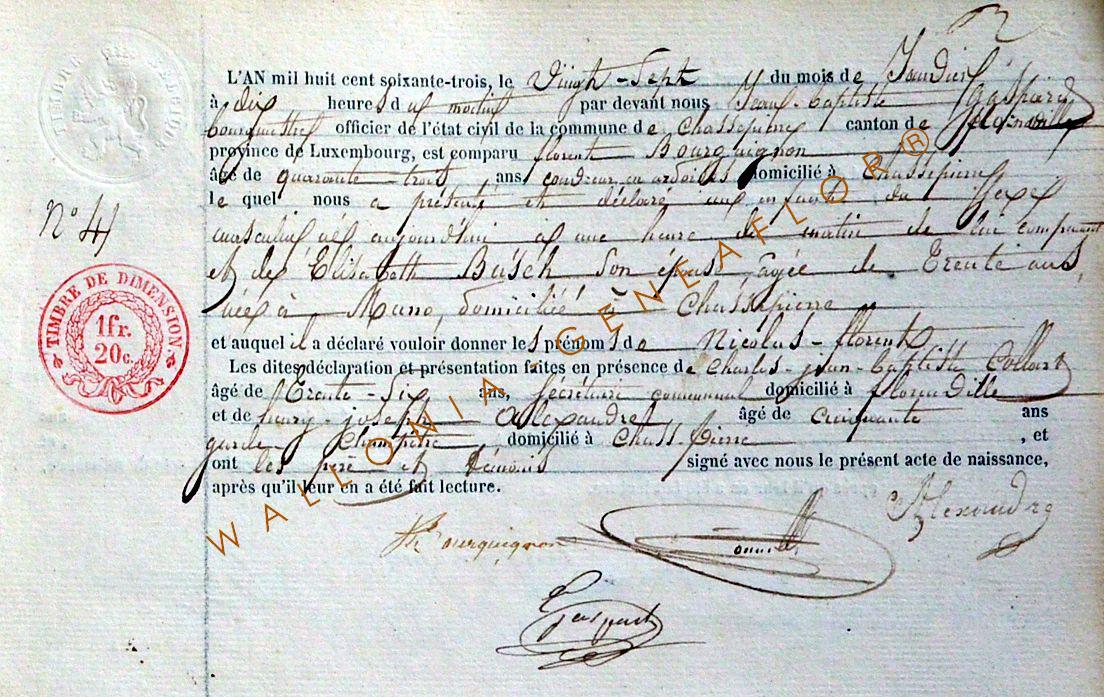 N° 4
TIMBRE DE DIMENSION
1fr.
20c.
L'AN mil huit cent soixante-trois, le Vingt-Sept du mois de Janvier
à dix heures du matin par devant nous Jean-baptiste Gaspard
bourguemestre officier de l'état civil de la commune de Chassepierre canton de florenville
province de Luxembourg, est comparu florent Bourguignon
âgé de quarante-trois ans couvreur en ardoises domicilié à Chassepierre
le quel nous a présenté et déclaré un enfant du sexe
masculin né aujourdhui à une heure de matin de lui comparant
et de Elisabeth Busch son épouse, agée de trente ans
née à Muno, domiciliée à Chassepierre
et auquel il a déclaré vouloir donner les prénoms de Nicolas-florent
Les dites déclaration et présentation faites en présence de Charles-jean-baptiste Collart
âgé de trente-six ans, Sécrétaire communal domicilié à florenville
et de henry-joseph alexandre âgé de cinquante ans
garde champetre, domicilié à Chassepierre, et
ont les père et témoins signé avec nous le présent acte de naissance,
après qu'il leur en a été fait lecture.
Bourguignon
Alexandre
Gaspard
WALLONIA GENEAFLOR®